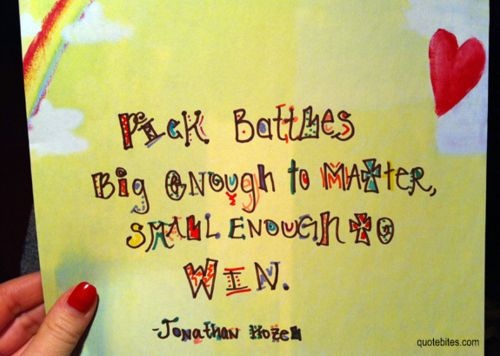 Pick Battles
Big Enough to Matter,
Small Enough to
Win.
-Jonathan Hozel
quotebites.com